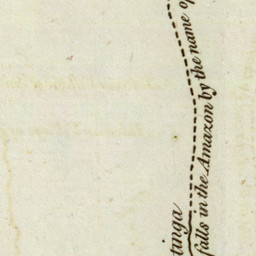 tinga
falls in the Amazon by the name o